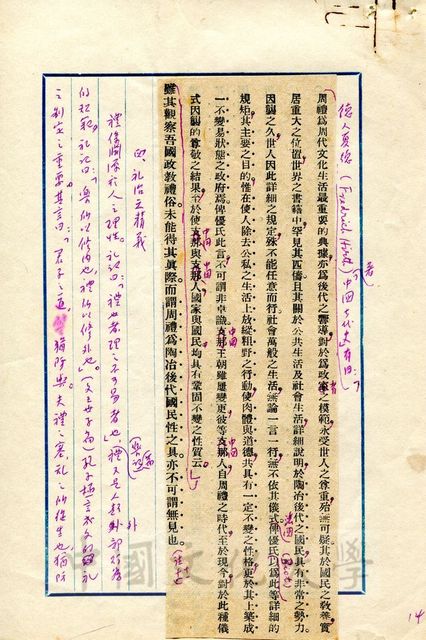 德人夏德(Friedrich Hirth)著中國古代史有曰：
周禮爲周代文化生活最重要的典據亦爲後代之嚮導對於爲政家之模範永受世人之尊重殆無可疑其於國民之敎養實
居重大之位置世界之書籍中罕見其匹儔且其關於公共生活及社會生活詳細說明於陶冶後代之國民具有非常之勢力
因襲之久世人因此詳細之規定殊不能任意而行社會萬般之生活無論一言一行無不依其儀式俾優氏以爲此等詳細的
法國
規矩其主要之目的惟在使人除去公私之生活上放縱粗野之行動使肉體與道德共具有一定不變之性格更於其上築成
一不變易狀態之政府焉俾優氏此言不可謂非卓識支那王朝雖屢變更彼等支那人自周禮之時代至於現今對於此種儀
中國
中國
式因襲的尊敬之結果至於使支那與支那人國家與國民均具有鞏固不變之性質云」
中國
中國
雖其觀察吾國政敎禮俗未能待其眞際而謂周禮爲陶冶後代國民性之具亦不可謂無見也
四、礼治之精義
禮俗淵源於人之理性。礼記曰：「禮也者理之不可易者也」禮又是人類外部行為
樂記篇
的規範。礼記曰：「樂所以修內也，禮所以修外也。」(文王世子篇)孔子極言
之制定之重要。其言曰：「君子之道，猶防與，夫禮之塞，乱之所從生也，猶防
中國文化大學
14